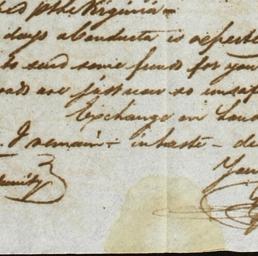 pr the Virginia -
days a Conducta is expecte
to send some funds for you
roads are just now so unsaf
Exchange on Lond
I remain - in haste - de
Your